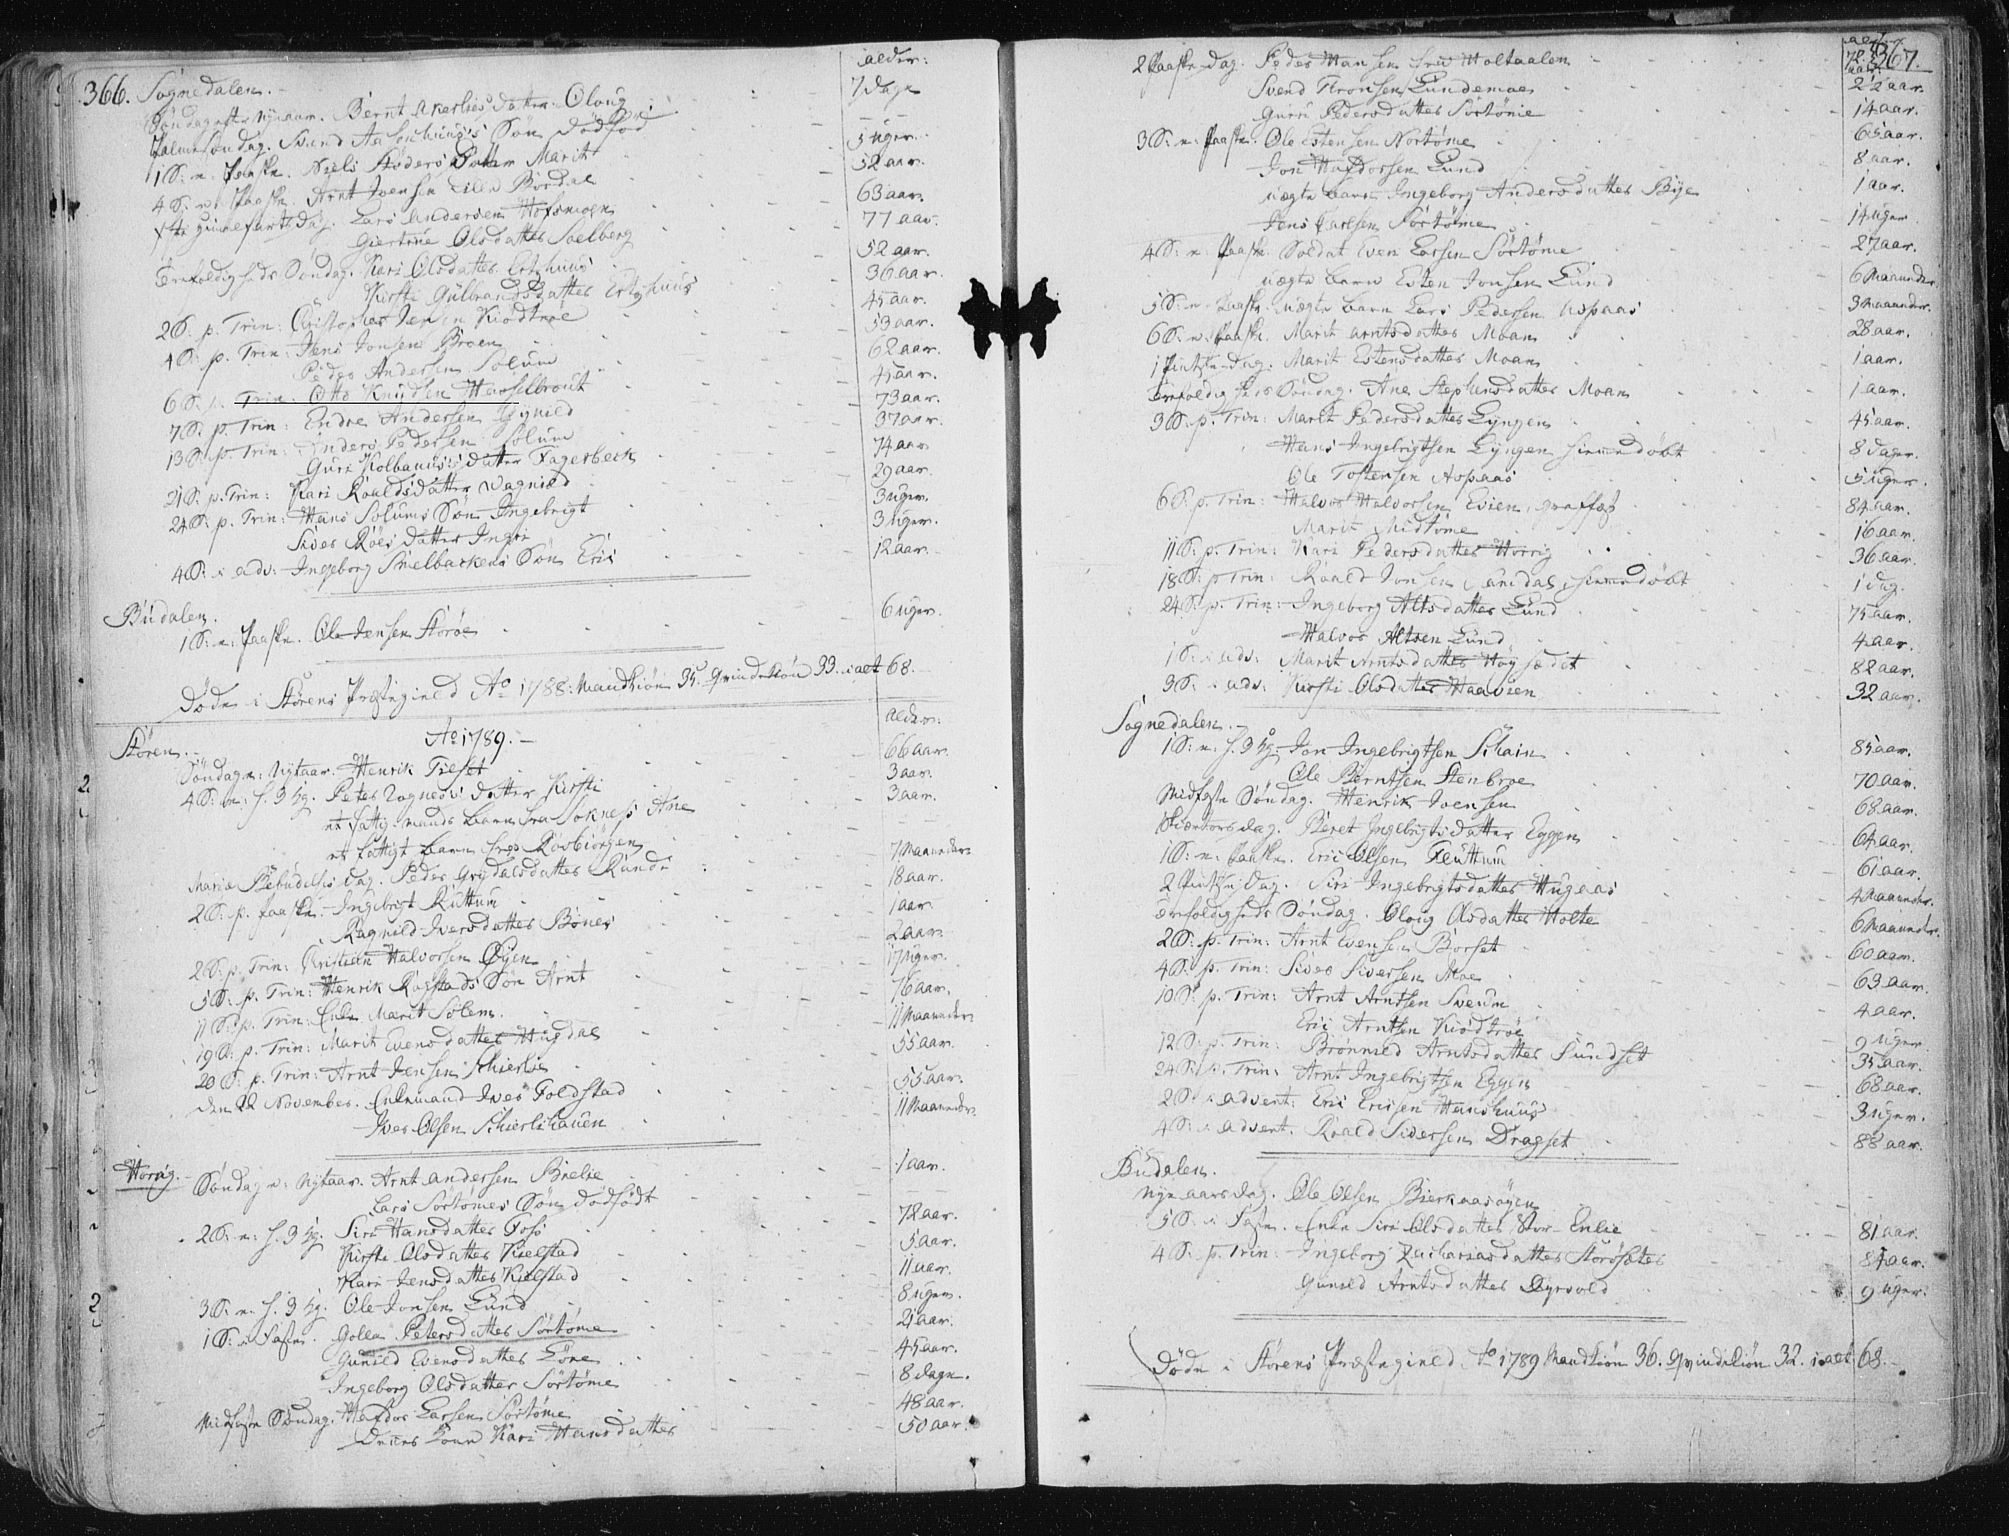 366. Sognedalen. alder:
Søndag efter Nyeaar. Bernt Akerlies datter Oloug 7 dage
Palmesøndag. Svend Aasenhuus's Søn dødfød
1 S: n: Paaske. Niels datter Marit 5 uger.
4 S: n: Paaske. Arnt Iversen Bordal 52 aar.
dag. Lars Andersen Hofsmoen 63 aar.
Giertrue Olsdatter Soelberg 77 aar.
Trefoldigheds Søndag. Kari Olsdatter Ertzhuus 52 aar.
Kirsti Gulbrandsdatter Ertzhuus 36 aar.
2 S: p: Trin: Christopher Kiødtrøe 45 aar.
4 S: p. Trin: Jens Jonsen Broen 53 aar.
Peder Andersen Solum 62 aar.
6 S: p. Trin: Otto Knudsen Hasselbrout 45 aar.
7 S: p. Trin: Endre Andersen Gynild 73 aar.
13 S: p. Trin: Anders Pedersen Solum 37 aar.
Guri Kolbans datter Fagerbeck 74 aar
21 S: p. Trin: Kari Roaldsdatter Vagnild 29 aar.
24 S: p. Trin: Hans Solums Søn Ingebrigt 3 uger.
Siver Røes datter Ingri 3 uger.
4 S: i adv: Ingeborg Snielbackens Søn Eric 12 aar.
Budalen.
1 S: n: Paaske. Ole Jensen Storøe 6 uger.
Døde i Størens Præstegield Ao 1788: Mandkiøn 35. Qvindekiøn 33. i alt 68.
Støren. Ao 1789. alder:
Søndag n: Nytaar. Henrik Frøset 66 aar.
4 S: n: H. 3 Kg. Peter Sognes's datter Kirsti 3 aar.
et fattig mands barn fra Sokness Ane 3 aar.
et fattigt barn hos Rosbiørgen
Mariæ Bebudelses dag. Peder Grydalsdatter Runde 7 Maaneder.
2 S: p. Paaske. Ingebrigt Ruttum 18 aar.
Ragnild Iversdatter Bones 1 aar
2 S: p. Trin: Christian Halvorsen Øyen 2 aar.
5 S: p. Trin: Henrik Rogstads Søn Arnt 17 uger.
11 S: p. Trin: Enke Marit Solem 76 aar.
19 S: p. Trin: Marit Evensdatter Hugdal 11 Maaneder.
20 S: p. Trin: Arnt Jensen Schierlie 55 aar.
den 22 November. Enkemand Iver Foldstad 55 aar.
Iver Olsen Schierlihauen 11 Maaneder.
Horrig.
Søndag n: Nytaar. Arnt Andersen Brelie 1 aar.
Lars Sørtømes Søn dødfødt
2 S: n: H. 3 Kg. Siri Hansdatter Foss 72 aar.
Kirsti Olsdatter Kielstad 5 aar.
Kari Jensdatter Kielstad 11 aar.
3 S. n: H. 3 Kg. Ole Jonsen Lund 8 uger.
1 S: i Faste. Golla Petersdatter Sørtøme 21 aar.
Gunild Evensdatter Løre 45 aar.
Ingeborg Olsdatter Sørtøme 8 dage.
Midfaste Søndag. Haldor Larsen Sørtøme 48 aar.
Dennes kone Kari Hansdatter 50 aar.
367.
2 Paaske-dag. Peder Hansen Holtaalen
Svend Tronsen Lundemoe 22 aar.
Guri Pedersdatter Sørtøme 14 aar.
3 S. n: Paaske. Ole Estensen Nortøme 65 aar.
Jon Haldorsen Lund 8 aar.
uægte barn Ingeborg Andersdatter Bye 1 aar.
Jens Carlsen Sørtøme 14 uger
4 S: n: Paaske. Soldat Even Larsen Sørtøme 27 aar.
uægte barn Esten Jonsen Lund 6 Maaneder.
5 S: n: Paaske. uægte barn Lars Pedersen Aspaas 3 Maaneder.
6 S: n: Paaske. Marit Arntsdatter Moan 28 aar.
1 Pintze-dag. Marit Estensdatter Moan 1 aar.
Trefoldigheds Søndag. Ane Stephensdatter Moan 1 aar.
3 S: p. Trin: Marit Pedersdatter Lyngen 45 aar.
Hans Ingebrigtsen Lyngen hiemmedøbt 8 dager.
Ole Tostensen Aspaas 5 uger.
6 S: p. Trin: Halvor Halvorsen Evien, 84 aar.
Marit Midtøme 16 aar.
11 S. p. Trin: Kari Pedersdatter Horrig 36 aar.
18 S: p Trin: Roald Jonsen hiemmedøbt 1 dag.
24 S. p. Trin: Ingeborg Altsdatter Lund 75 aar.
Halvor Altsen Lund 4 aar.
1 S: i adv: Marit Arntsdatter Høysædet 82 aar.
3 S: i adv: Kirsti Olsdatter Haavsen 32 aar.
Sognedalen.
1 S: n: H. 3 Kg. Jon Ingebrigtsen Schain 85 aar.
Ole Berntsen Stenbroe 70 aar.
Midfaste Søndag. Henrik Iversen 68 aar.
Skiertorsdag. Beret Ingebrigtsdatter Eggen 64 aar.
1 S: n: Paaske. Eric Olsen Fluttum 61 aar.
2 Pintzedag. Siri Ingebrigtsdatter Hugaas 4 Maaneder.
Trefoldigheds Søndag. Oloug Olsdatter Holte 6 Maaneder.
2 S: p. Trin: Arnt Evensen Borset 60 aar.
4 S: p. Trin: Siver Siversen Røe 63 aar.
10 S: p. Trin: Arnt Arntsen Sveum 4 aar.
Eric Arntsen Kiødtrøe 9 uger
12 S: p. Trin: Brønild Arntsdatter Sundset 35 aar.
24 S: p. Trin: Arnt Ingebrigtsen Eggen 68 aar.
2 S: i advent: Eric Ericsen Hanshuus 3 uger.
4 S: i advent. Roald Siversen Dragset 88 aar.
Budalen.
Nye aarsdag. Ole Olsen Bierkaasøyen
5 S: i Faste. Enke Siri Olsdatter Stor-Enlie 81 aar.
4 S: p. Trin: Ingeborg Zachariasdatter Storøsæter 84 aar.
Gunild Arntsdatter Dyrvold 9 uger.
Døde i Størens Præstegield Ao 1789 Mandkiøn 36. Qvindekiøn 32. i alt 68.